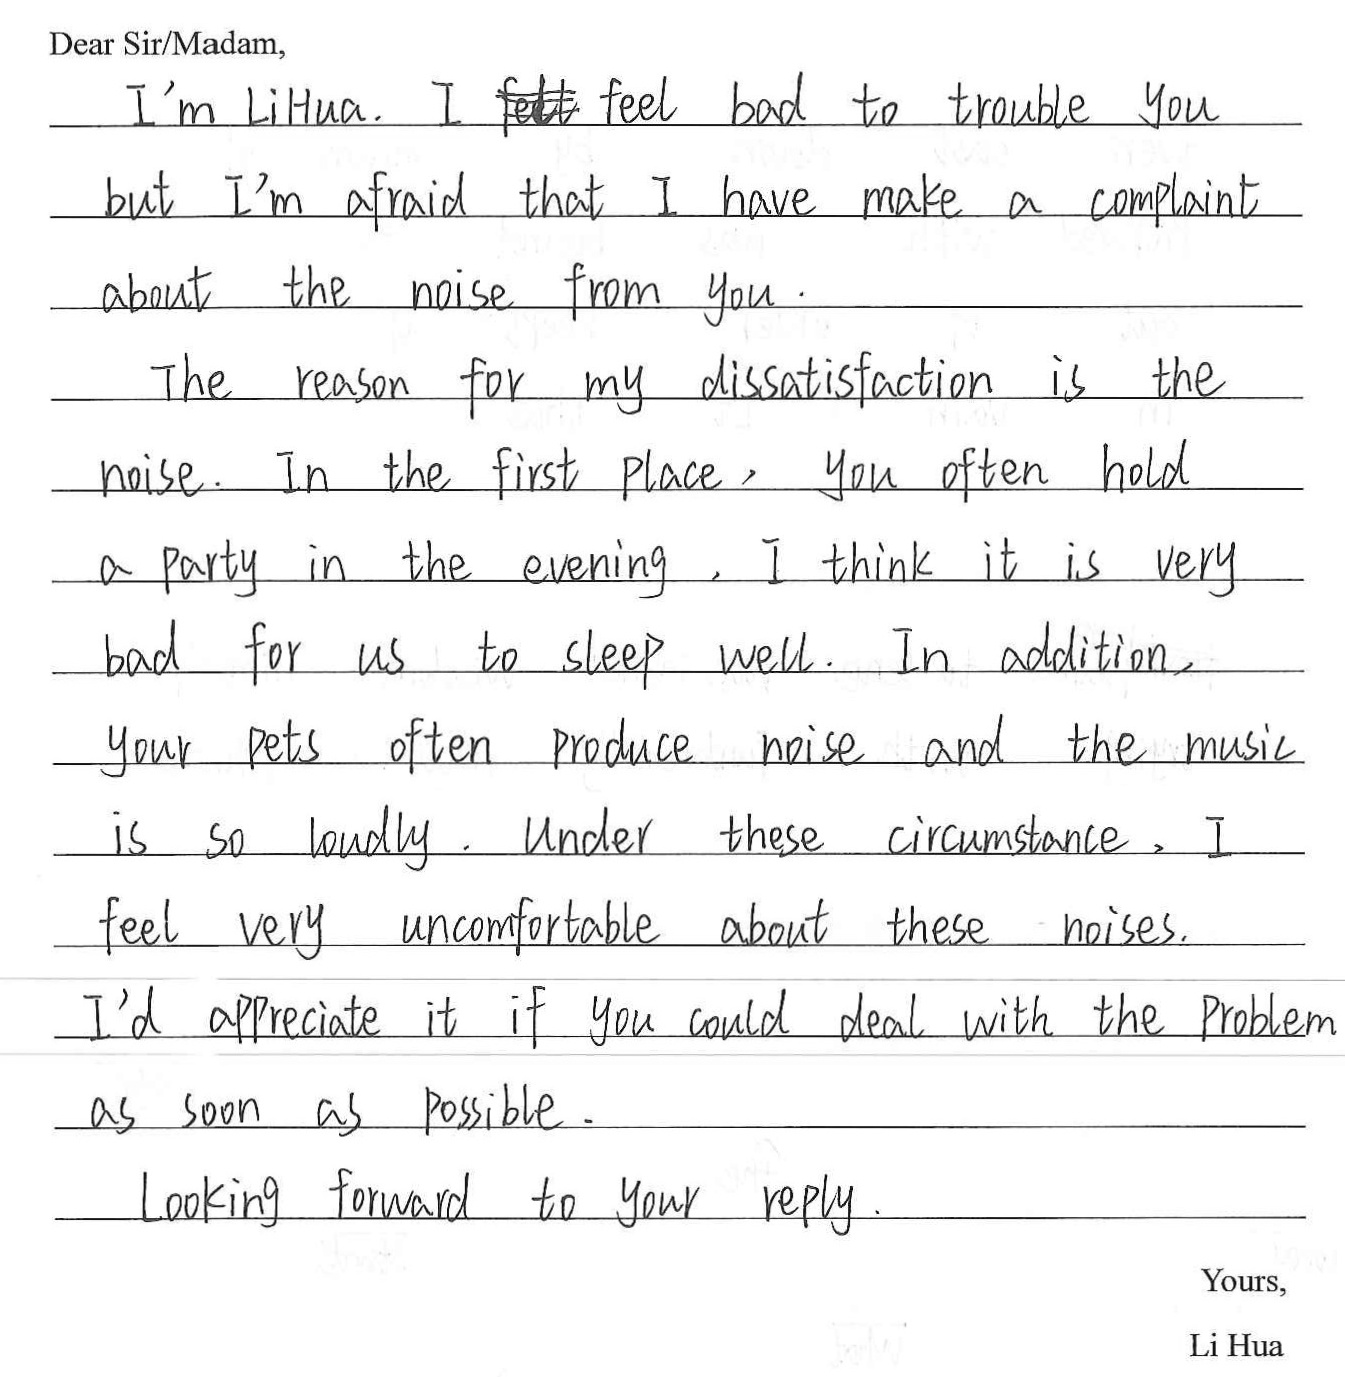 Dear Sir/Madam,
I'm LiHua. I feel bad to trouble you
but I'm afraid that I have make a complaint
about the noise from you.
The reason for my dissatisfaction is the
noise. In the first place, you often hold
a party in the evening. I think it is very
bad for us to sleep well. In addition,
your pets often produce noise and the music
is so loudly. Under these circumstance, I
feel very uncomfortable about these noises.
I'd appreciate it if you could deal with the problem
as soon as possible.
Looking forward to your reply.
Yours,
Li Hua